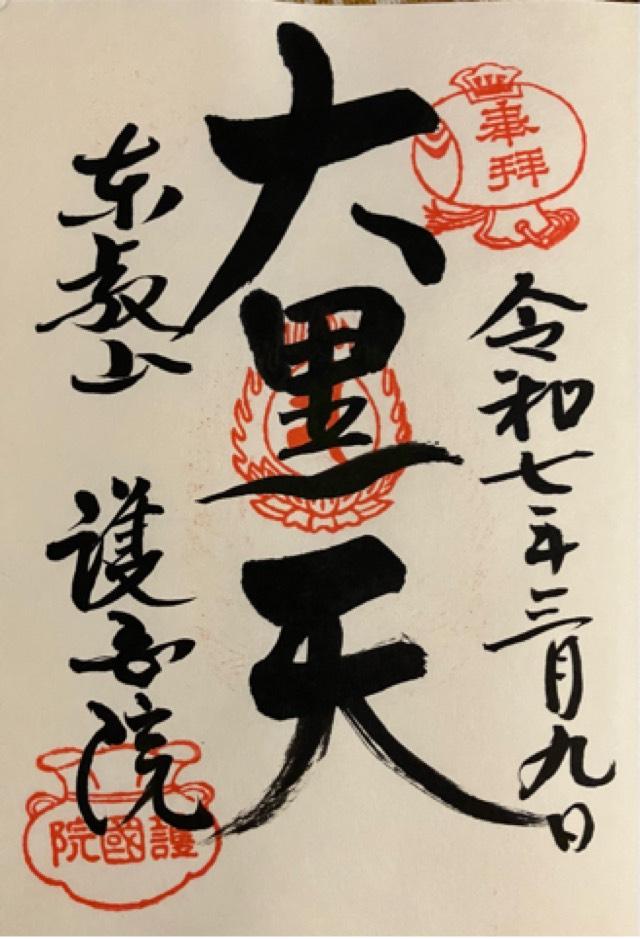 奉拝
令和七年三月九日
大黒天
東叡山 護国院
護國院